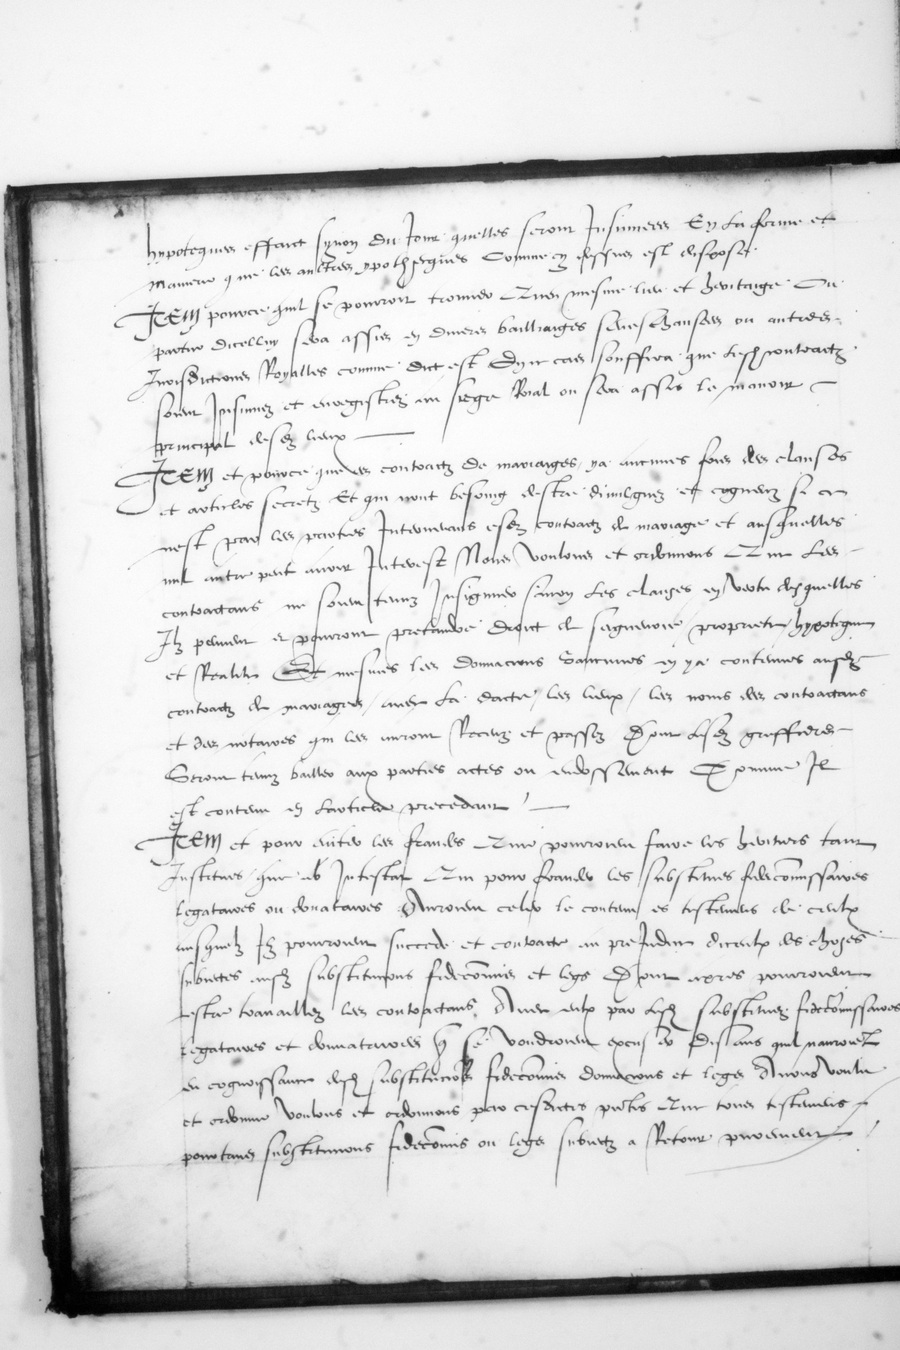 hypotegues effect synon du Jour quelles seront Insinuees En La forme et
maniere que les aultres ypothecques Comme cy dessus est dispose
ITEM pource quil se pourroit trouver Quen mesme lieu et heritaige Ou
partie dicelluy sera assise en divers bailliaiges seneschausees ou autres
Jurisdictions Royalles comme dict est Oudit cas souffira que lesd contractz
soient Insinuez et enregistrez au siege Roial ou sera assis le manoir
principal desd lieux
ITEM et pource que es contractz de mariaiges ya aucunes fois des clauses
et articles secretz Et qui nont besoing destre divulguez et cogneuz si ce
nest par les parties Intervenans esd contractz de mariage et ausquelles
nul autre peut avoir Interest Nous voulons et ordonnons Que Les
contractans ne soient tenuz Insignuer sinon Les clauses en vertu desquelles
Ilz peuvent et pourront pretendre droict de seigneurie propriete hypotegue
et Realite Et mesmes les donnacions saucunes en ya contenues ausd
contractz de mariages avec La dacte les lieux les noms des contractans
et des notaires qui les auront Receuz et passez Dont lesd greffiers
Seront tenuz bailler aux parties actes ou endossement Comme Il
est contenu en Larticle precedant
ITEM et pour eviter les fraudes Que pourroient faire les heritiers tant
Instituez que ab Intestat Qui pour frauder les substituez fideicommissaires
legataires ou donataires pourroient celer le contenu es testamens de ceulx
ausquelz Ilz pourroient succede et contracte au preJudice diceulx des choses
subiectes ausd substitucions fideicommis et legs Dont apres pourroient
estre travaillez les contractans Avec eulx par lesd substituez fideicommissaires
legataires et donnataires qui se voudroient excuser Disans quil nauroient
eu cognoissance desd substitucions fideicommis donacions et legs Avons voulu
et ordonne voulons et ordonnons par cesdictes pntes Que tous testamens
portans substitucions fideicommis ou legs subiectz a Retour